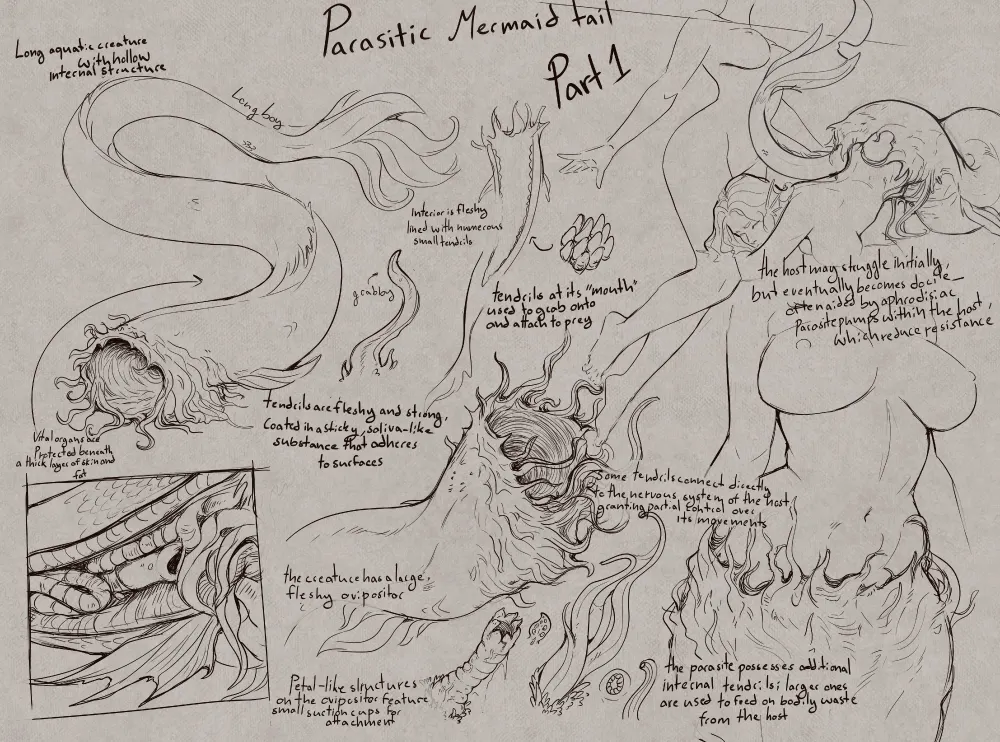 Parasitic Mermaid tail
Part 1
Long aquatic creature
with hollow
internal structure
Long boy
Interior is fleshy
lined with numerous
small tendrils
grabby
tendrils at its "mouth"
used to grab onto
and attach to prey
the host may struggle initially,
but eventually becomes docile
often aided by aphrodisiac
Parasite pumps within the host,
which reduce resistance
tendrils are fleshy and strong,
Coated in a sticky, saliva-like
substance that adheres
to surfaces
Vital organs are
Protected beneath
a thick layer of skin and
fat
Some tendrils connect directly
to the nervous system of the host
granting partial control over
its movements
the creature has a large,
fleshy ovipositor
Petal-like structures
on the ovipositor feature
small suction cups for
attachment
the parasite possesses additional
internal tendrils; larger ones
are used to feed on bodily waste
from the host